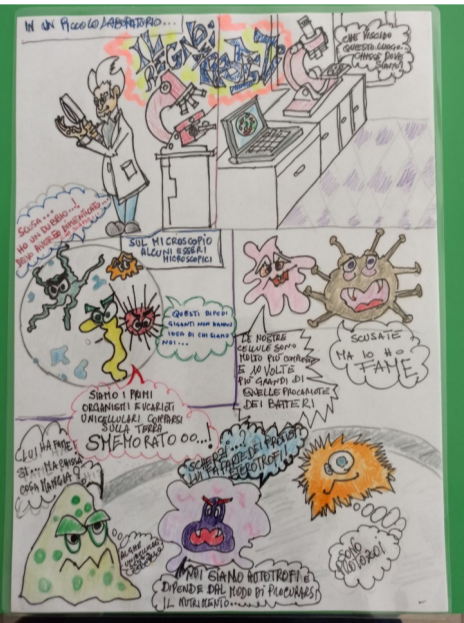 IN UN PICCOLO LABORATORIO...
IL
REGNO
DEI
CHE VISCIDO
QUESTO LUOGO.
SCUSA...
HO UN DUBBIO...!
DEVO AVERLO DIMENTICATO...
SUL MICROSCOPIO
ALCUNI ESSERI
MICROSCOPICI
QUESTI BIPEDI
GIGANTI NON HANNO
IDEA DI CHI SIAMO
NOI...
SIAMO I PRIMI
ORGANISMI EUCARIOTI
UNICELLULARI COMPARSI
SULLA TERRA
SMEMORATO OO...!
LE NOSTRE
CELLULE SONO
MOLTO PIÙ COMPLESSE
E 10 VOLTE
PIÙ GRANDI DI
QUELLE PROCARIOTE
DEI BATTERI
SCUSATE
MA IO HO
FAME
LUI HA FAME
SI... MA
COSA MANGIA?
SCHERZI...?
LUI FA PARTE DEI PROTISTI
ETEROTROFI
ALGHE
UNICELLULARI
SONO
PROTOZOI
NOI SIAMO AUTOTROFI E
DIPENDE DAL MODO DI PROCURARSI
IL NUTRIMENTO......